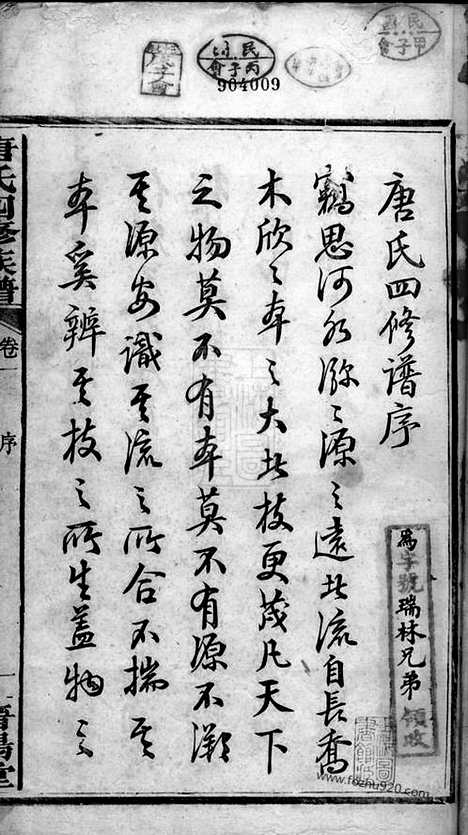 民國丙子會
904009
唐氏四修譜序
竊思河水瀰瀰源之遠者流自長喬
木欣欣本之大者枝更茂凡天下
之物莫不有本莫不有源不溯
其源安識其流之所合不揣其
本奚辨其枝之所生蓋物之
為字號瑞林兄弟領收
唐氏四修族譜
卷一
序
一
晉陽堂
www.fozhu920.com